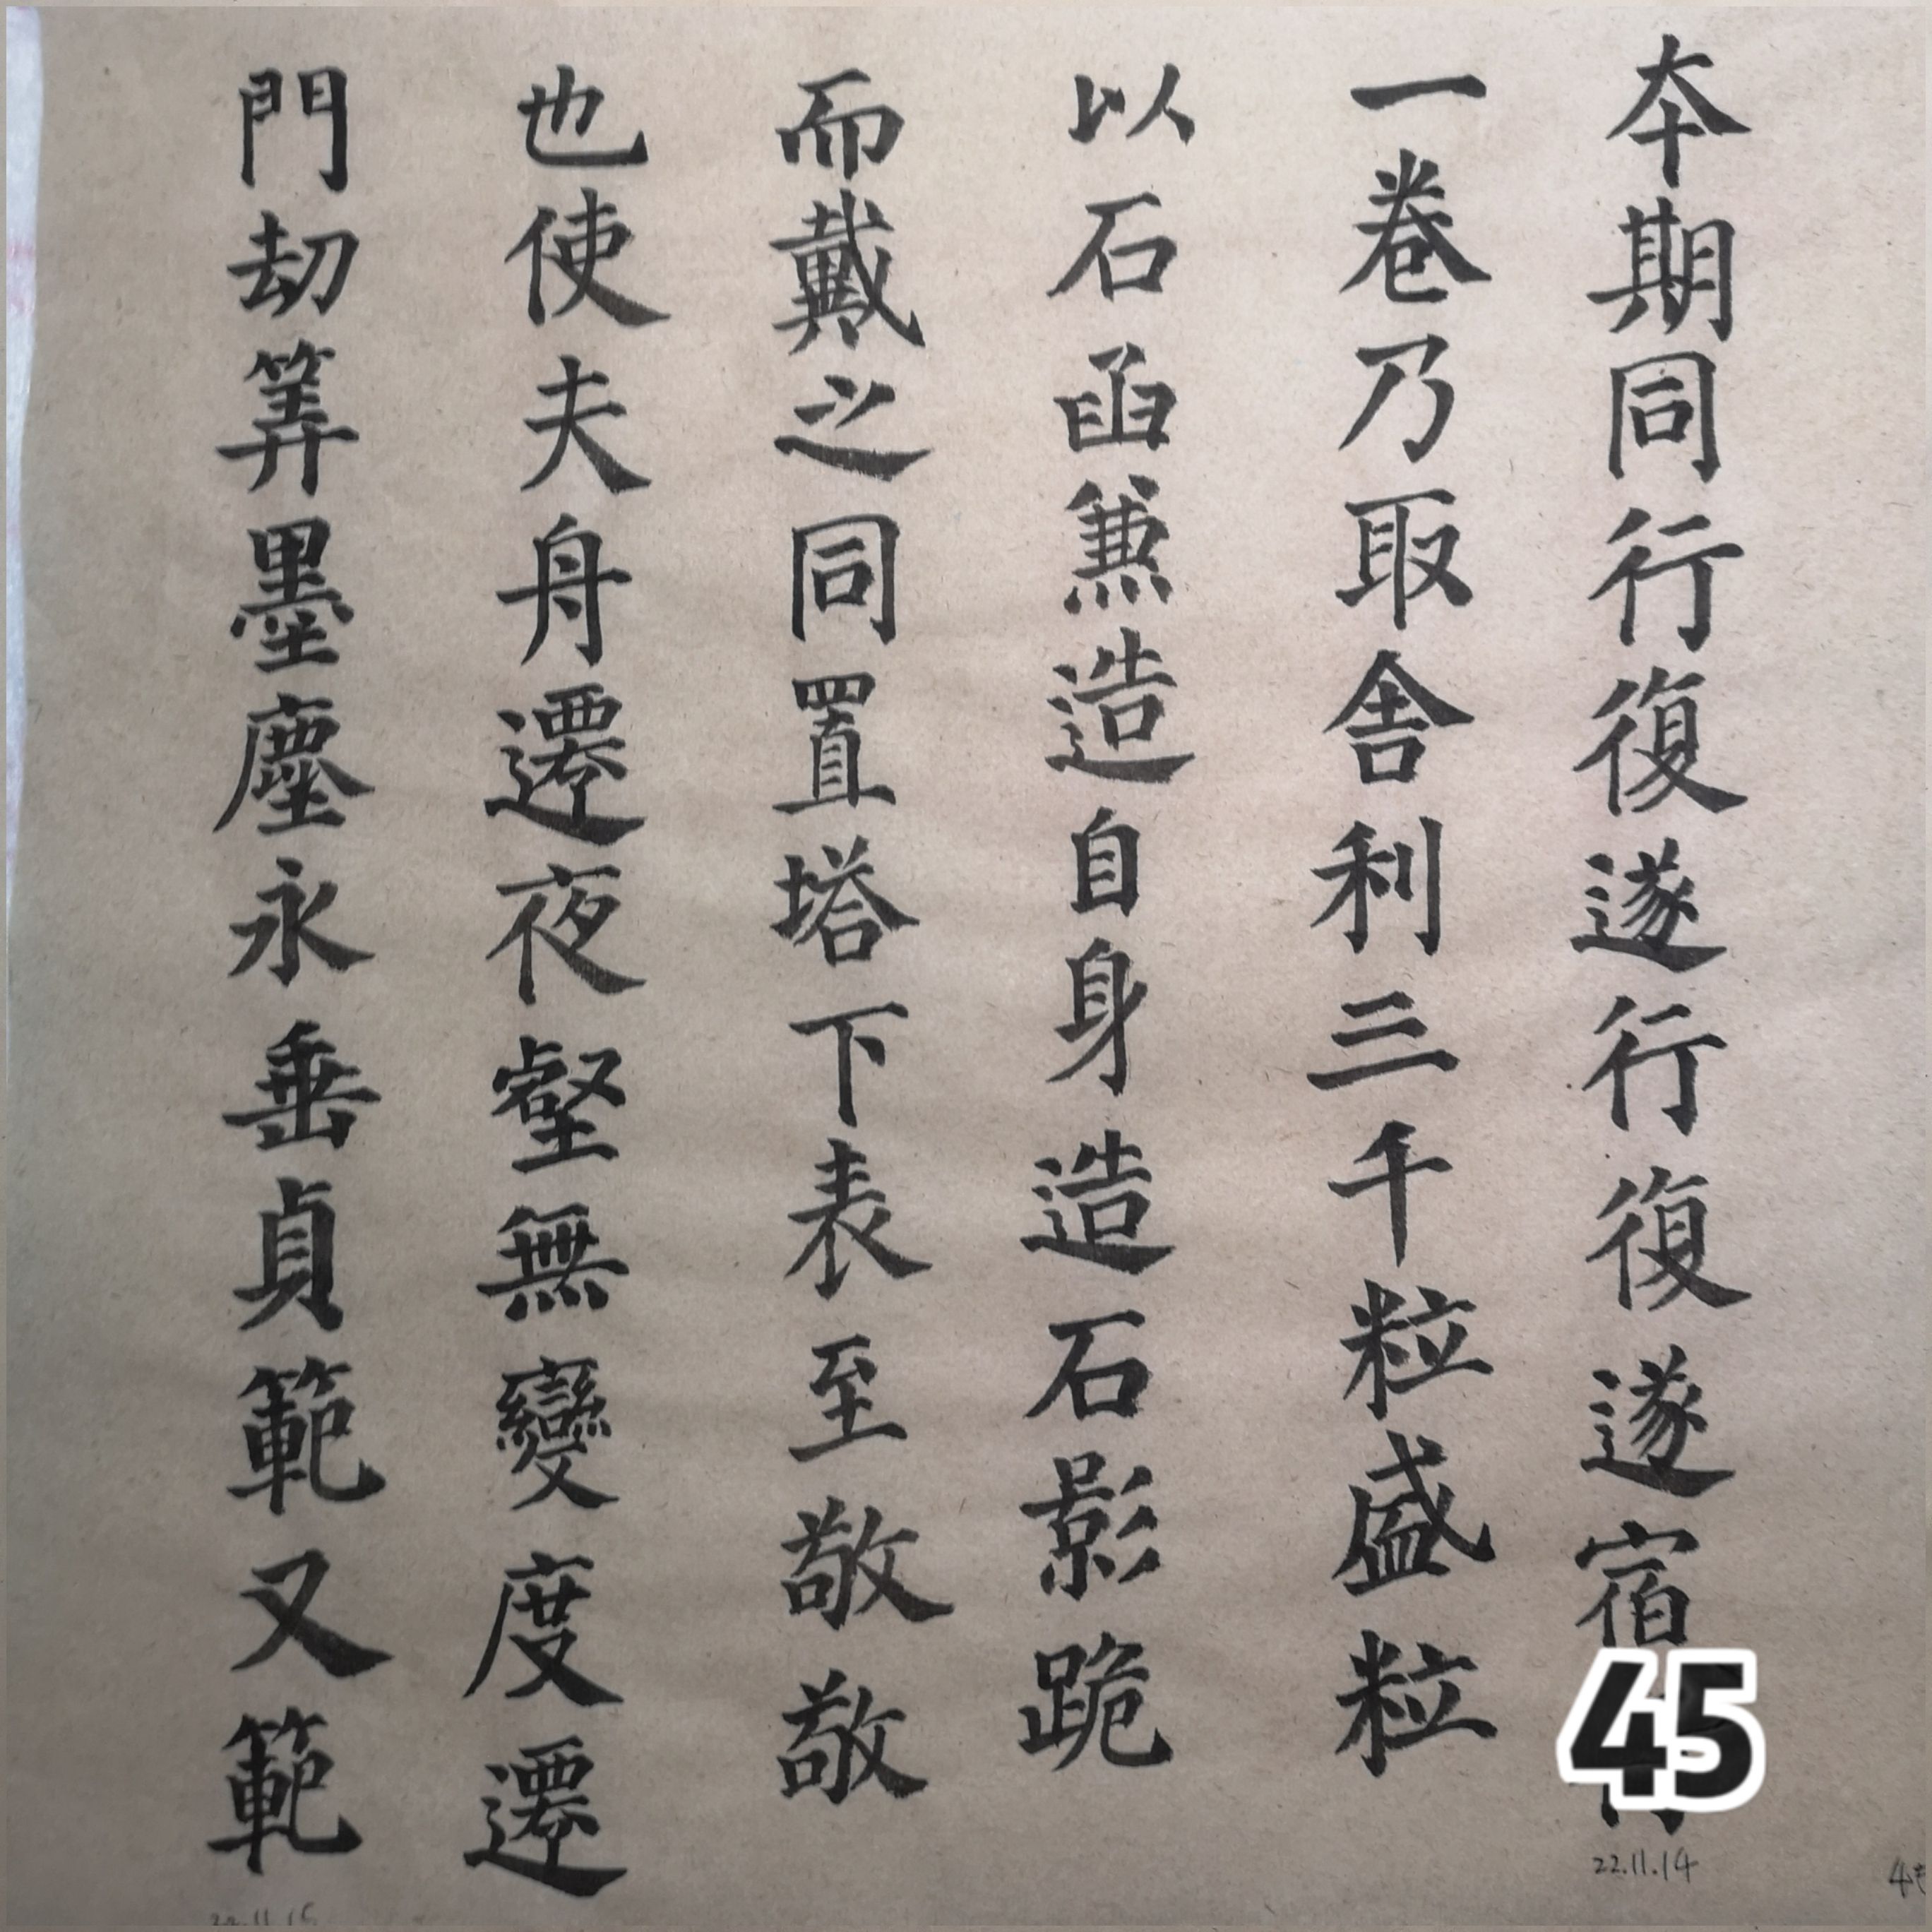 夲期同行復遂行復遂宿
一卷乃取舎利三千粒盛粒
以石函兼造自身造石影跪
而戴之同置塔下表至敬敬
也使夫舟遷夜壑無變度遷
門劫筭墨塵永垂貞範又範
45
22.11.14